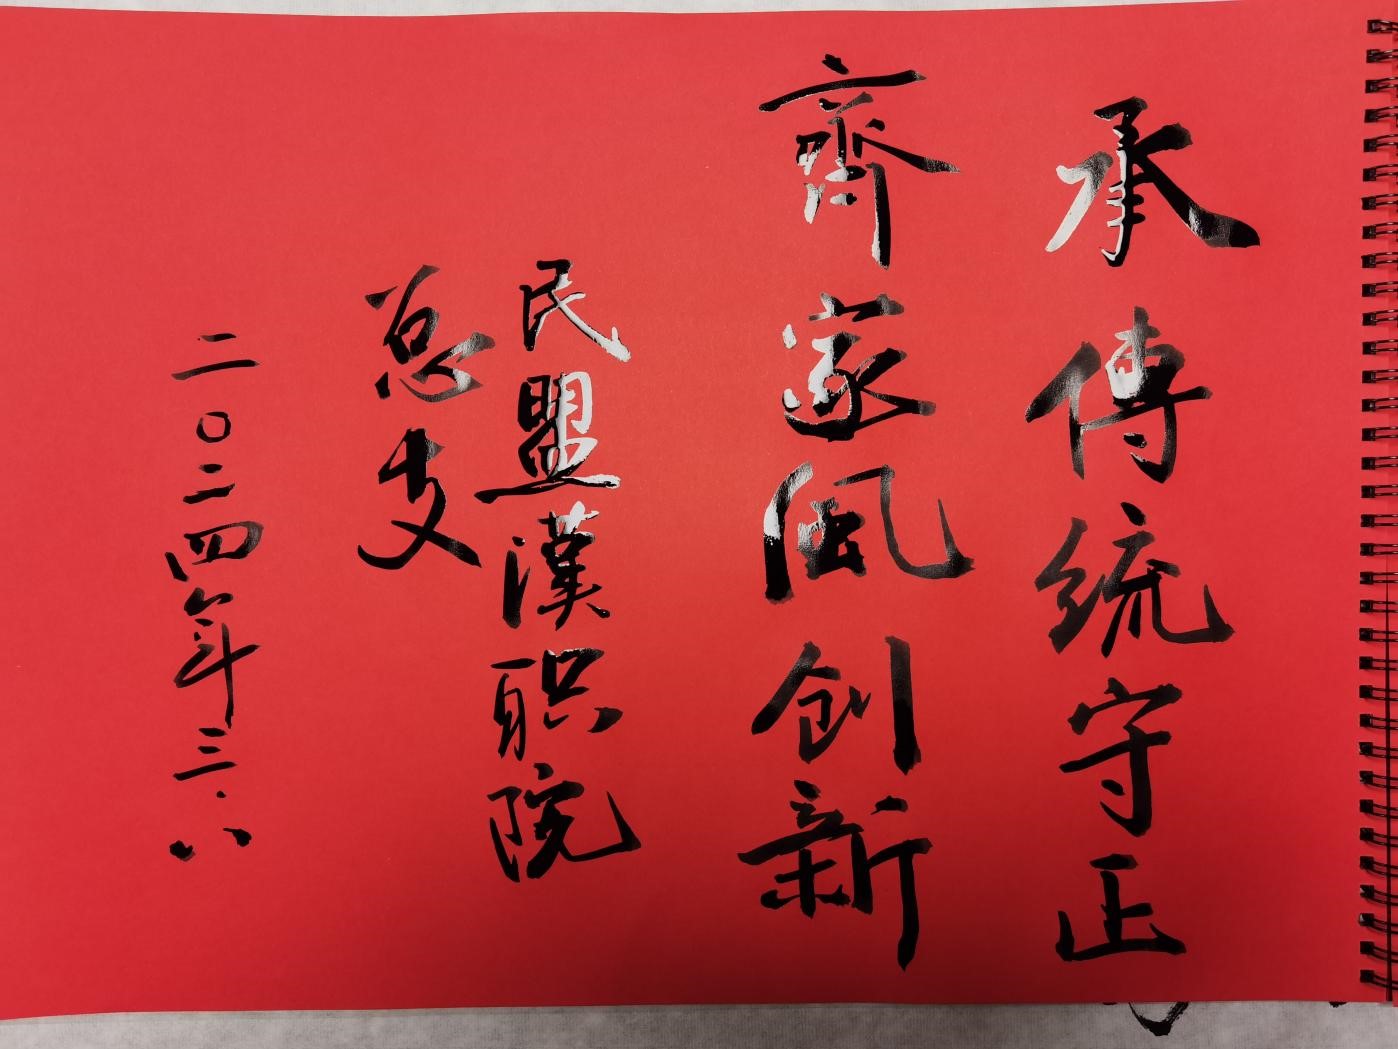 承傳統守正
齊家風创新
民盟漢职院
总支
二〇二四年三.八